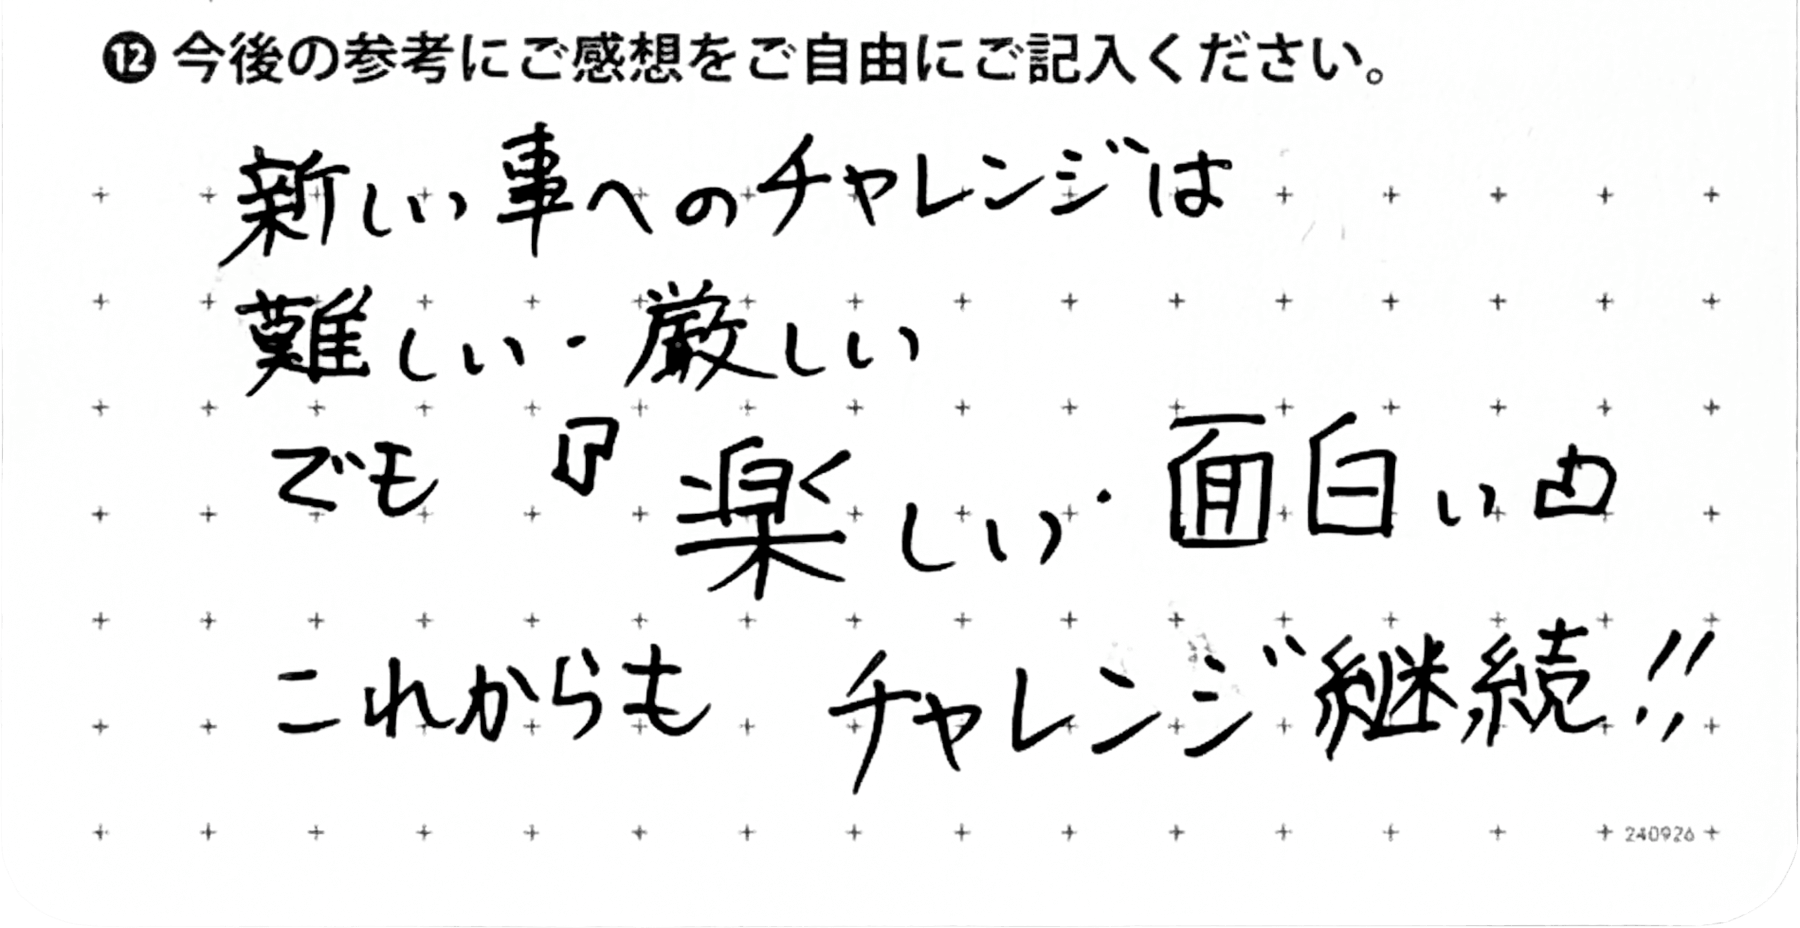 ⑫ 今後の参考にご感想をご自由にご記入ください。
新しい事へのチャレンジは
難しい・厳しい
でも『楽しい・面白い』
これからも チャレンジ継続!!
240926